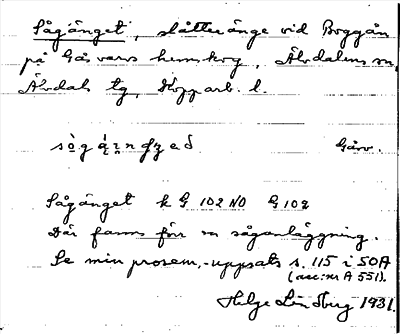 Sågänget, slåtteränge vid Roggån
på Gåsvarv hemskog, Älvdalens sn,
Älvdals tg, Kopparb. l.
Gåsv.
Sågänget k G 102 NO G 102
Där fanns förr en såganläggning.
Se min prosem.-uppsats s. 115 i 50A
(acc:nr A 551).
Helge Lindberg 1931.